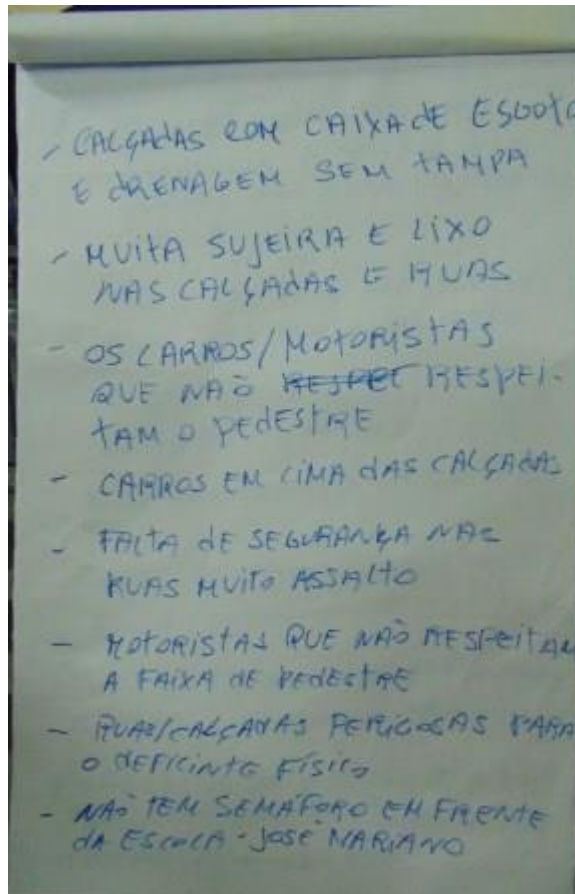 - CALÇADAS COM CAIXA DE ESGOTO
E DRENAGEM SEM TAMPA
- MUITA SUJEIRA E LIXO
NAS CALÇADAS E RUAS
- OS CARROS/MOTORISTAS
QUE NÃO RESPEI-
TAM O PEDESTRE
- CARROS EM CIMA DAS CALÇADAS
- FALTA DE SEGURANÇA NAS
RUAS MUITO ASSALTO
- MOTORISTAS QUE NÃO RESPEITAM
A FAIXA DE PEDESTRE
- RUAS/CALÇADAS PERIGOSAS PARA
O DEFICINTE FÍSICO
- NÃO TEM SEMÁFORO EM FRENTE
DA ESCOLA - JOSÉ MARIANO